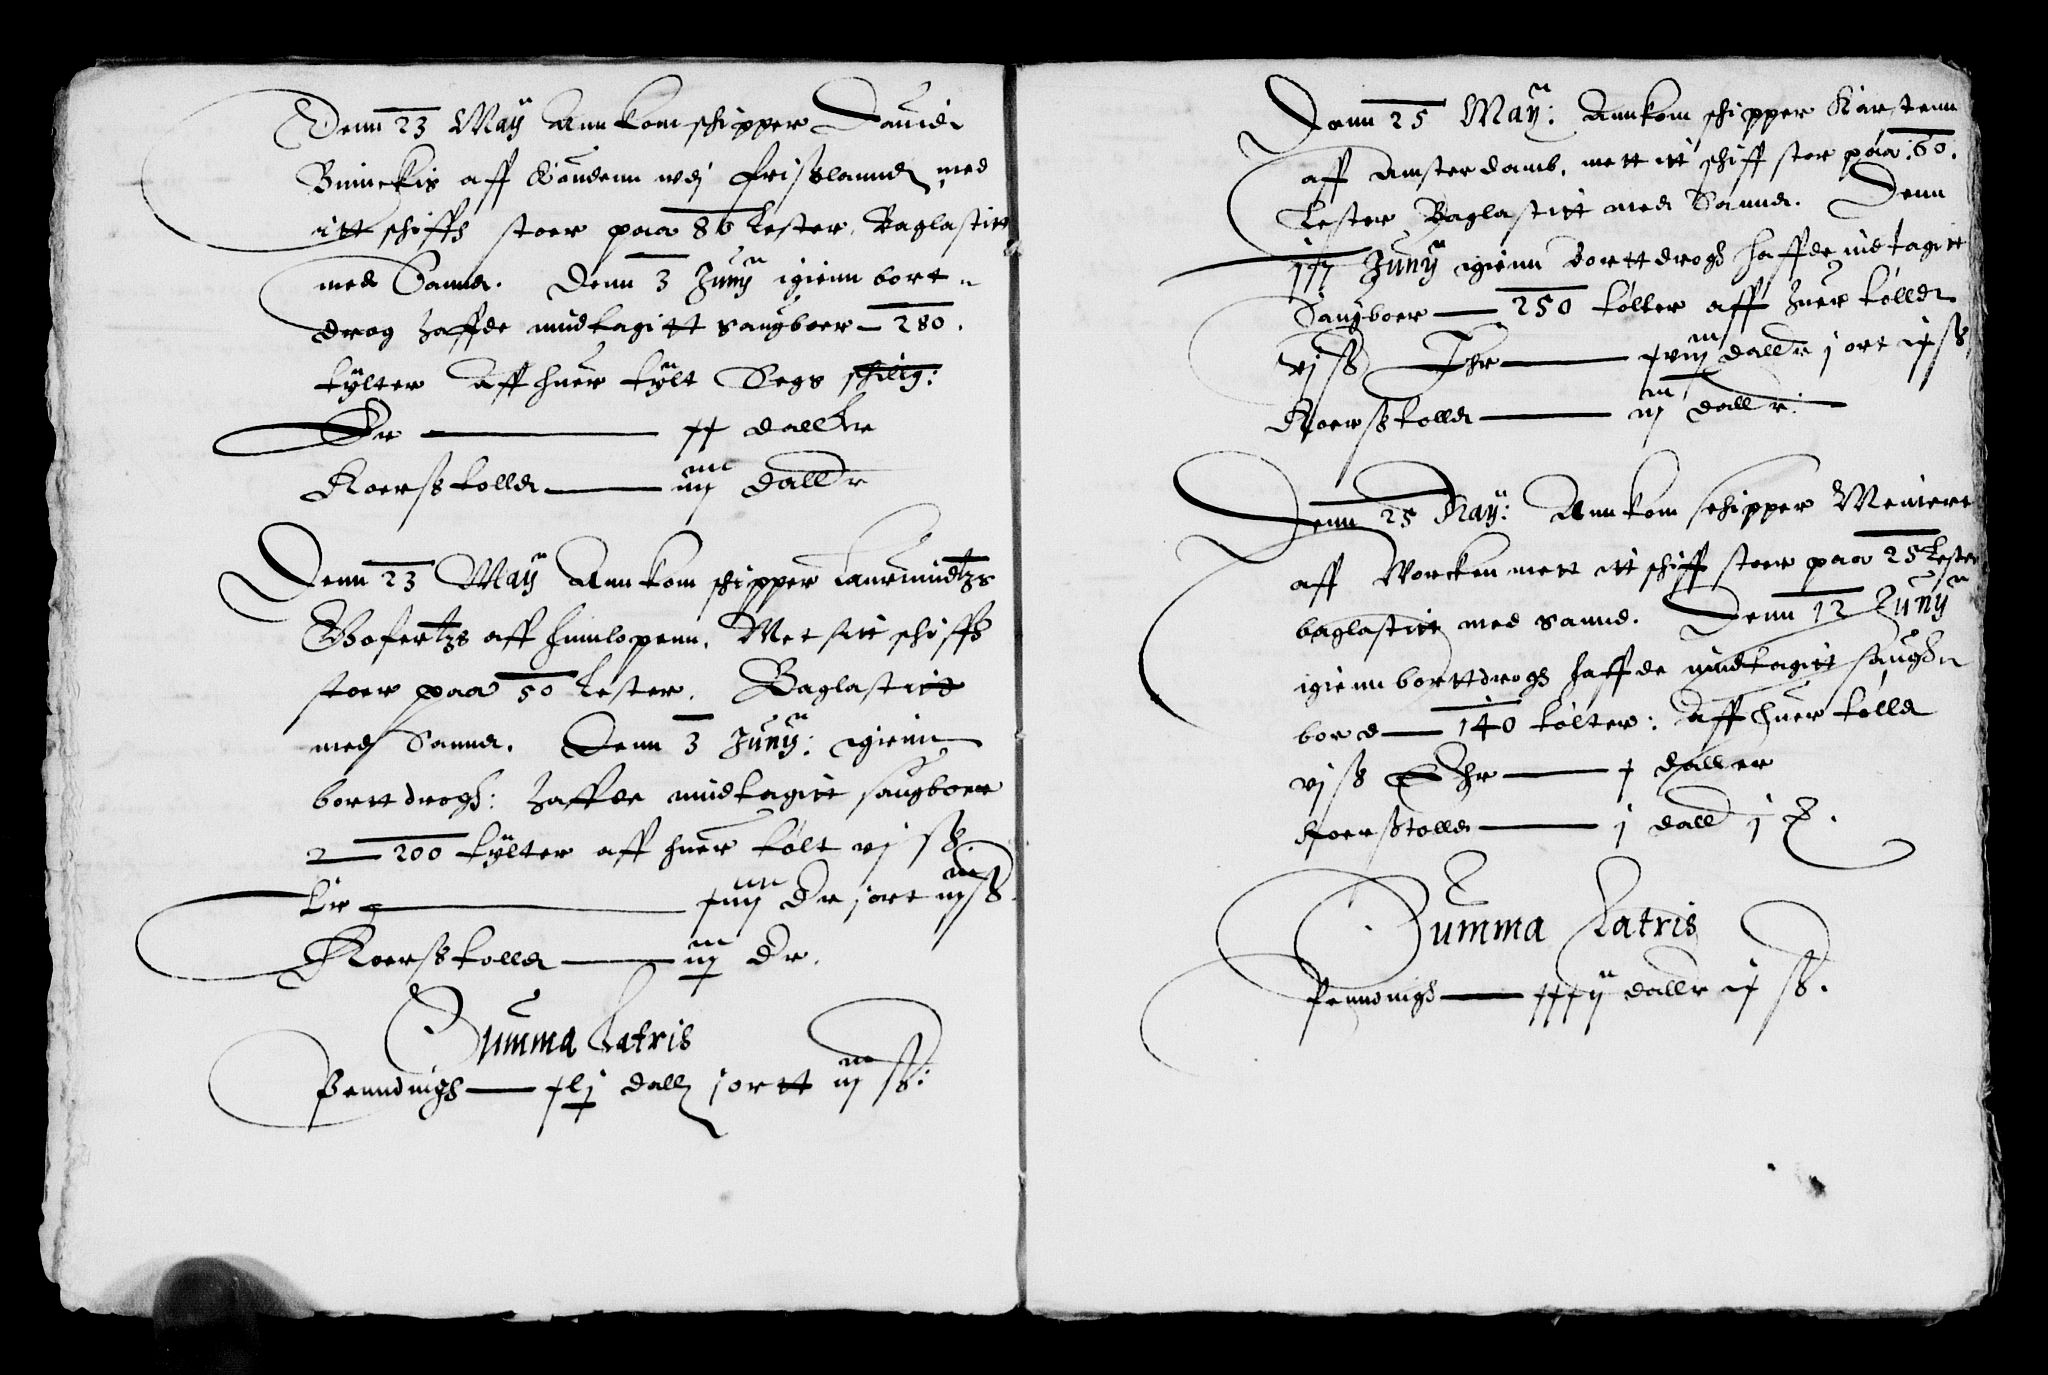 Denn 23 Maÿ Ann kom schipper Dauid
Binnckis aff Woudenn wdj Frisslannd med
itt schiffs stoer paa 86 Lester, Baglastitt
med Sannd. Denn 3 Junÿ igienn bort
drog haffde inndtagitt Saugboer — 280.
tÿlter Aff huer tÿlt Segs schillg:
Er — xx daller
Koersstolld — iiij dallr
Denn 23 Maÿ Ann kom schipper Laurinndtzs
Gofertzs aff Hinnlopenn, Met sitt schiffs
stoer paa 50 Lester. Baglastitt
med Sannd. Denn 3 Junÿ: igienn
bortt drogs: haffde inndtagitt saugboer
— 200 tÿlter aff huer tolt vj ss
Er — xiiij Dr j ort iiij ss
Koersstolld — iij Dr.
Summa Latris
Penndings — xlj dallr j ortt iiij ss:
Denn 25 Maÿ: Annkom schipper Karstenn
aff Amsterdamb, mett itt schiff stor paa: 60.
Lester Baglastitt med Sannd. Denn
Junÿ igienn bortt drogs haffde indtagitt
Saugboer — 250 tolter aff huer tolldt
vj ss Ehr — xvij dallr j ort ij ss
Koersstolld — iij dallr:
Denn 25 Maÿ: Ann kom schipper Meniert
aff Worcken mett itt schiff stoer paa 25 Lester
baglastitt med Sannd. Denn 12 Junÿ
igienn bortt drogs haffde inndtagitt saugdn
bord — 140 tolter: Aff huer tolld
vj ss Ehr — x daller
Koersstolld — j dallr j
Summa Latris
Penndings — xxxij dallr ij ss.